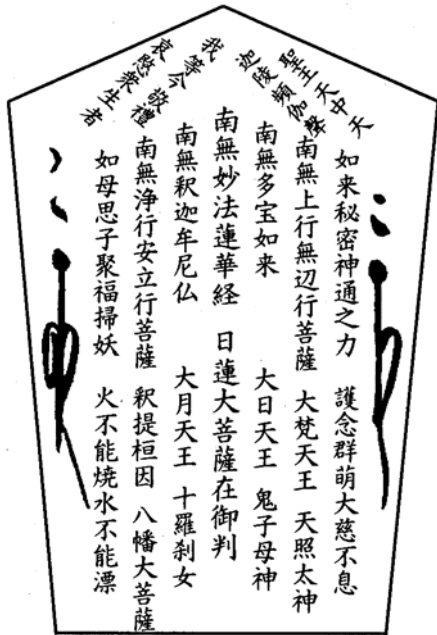 聖主天中天
迦陵頻伽聲
我等今敬禮
哀愍衆生者
如来秘密神通之力　護念群萌大慈不息
南無上行無辺行菩薩　大梵天王　天照太神
南無多宝如来　大日天王　鬼子母神
南無妙法蓮華経　日蓮大菩薩在御判
南無釈迦牟尼仏　大月天王　十羅刹女
南無浄行安立行菩薩　釈提桓因　八幡大菩薩
如母思子聚福掃妖　火不能焼水不能漂